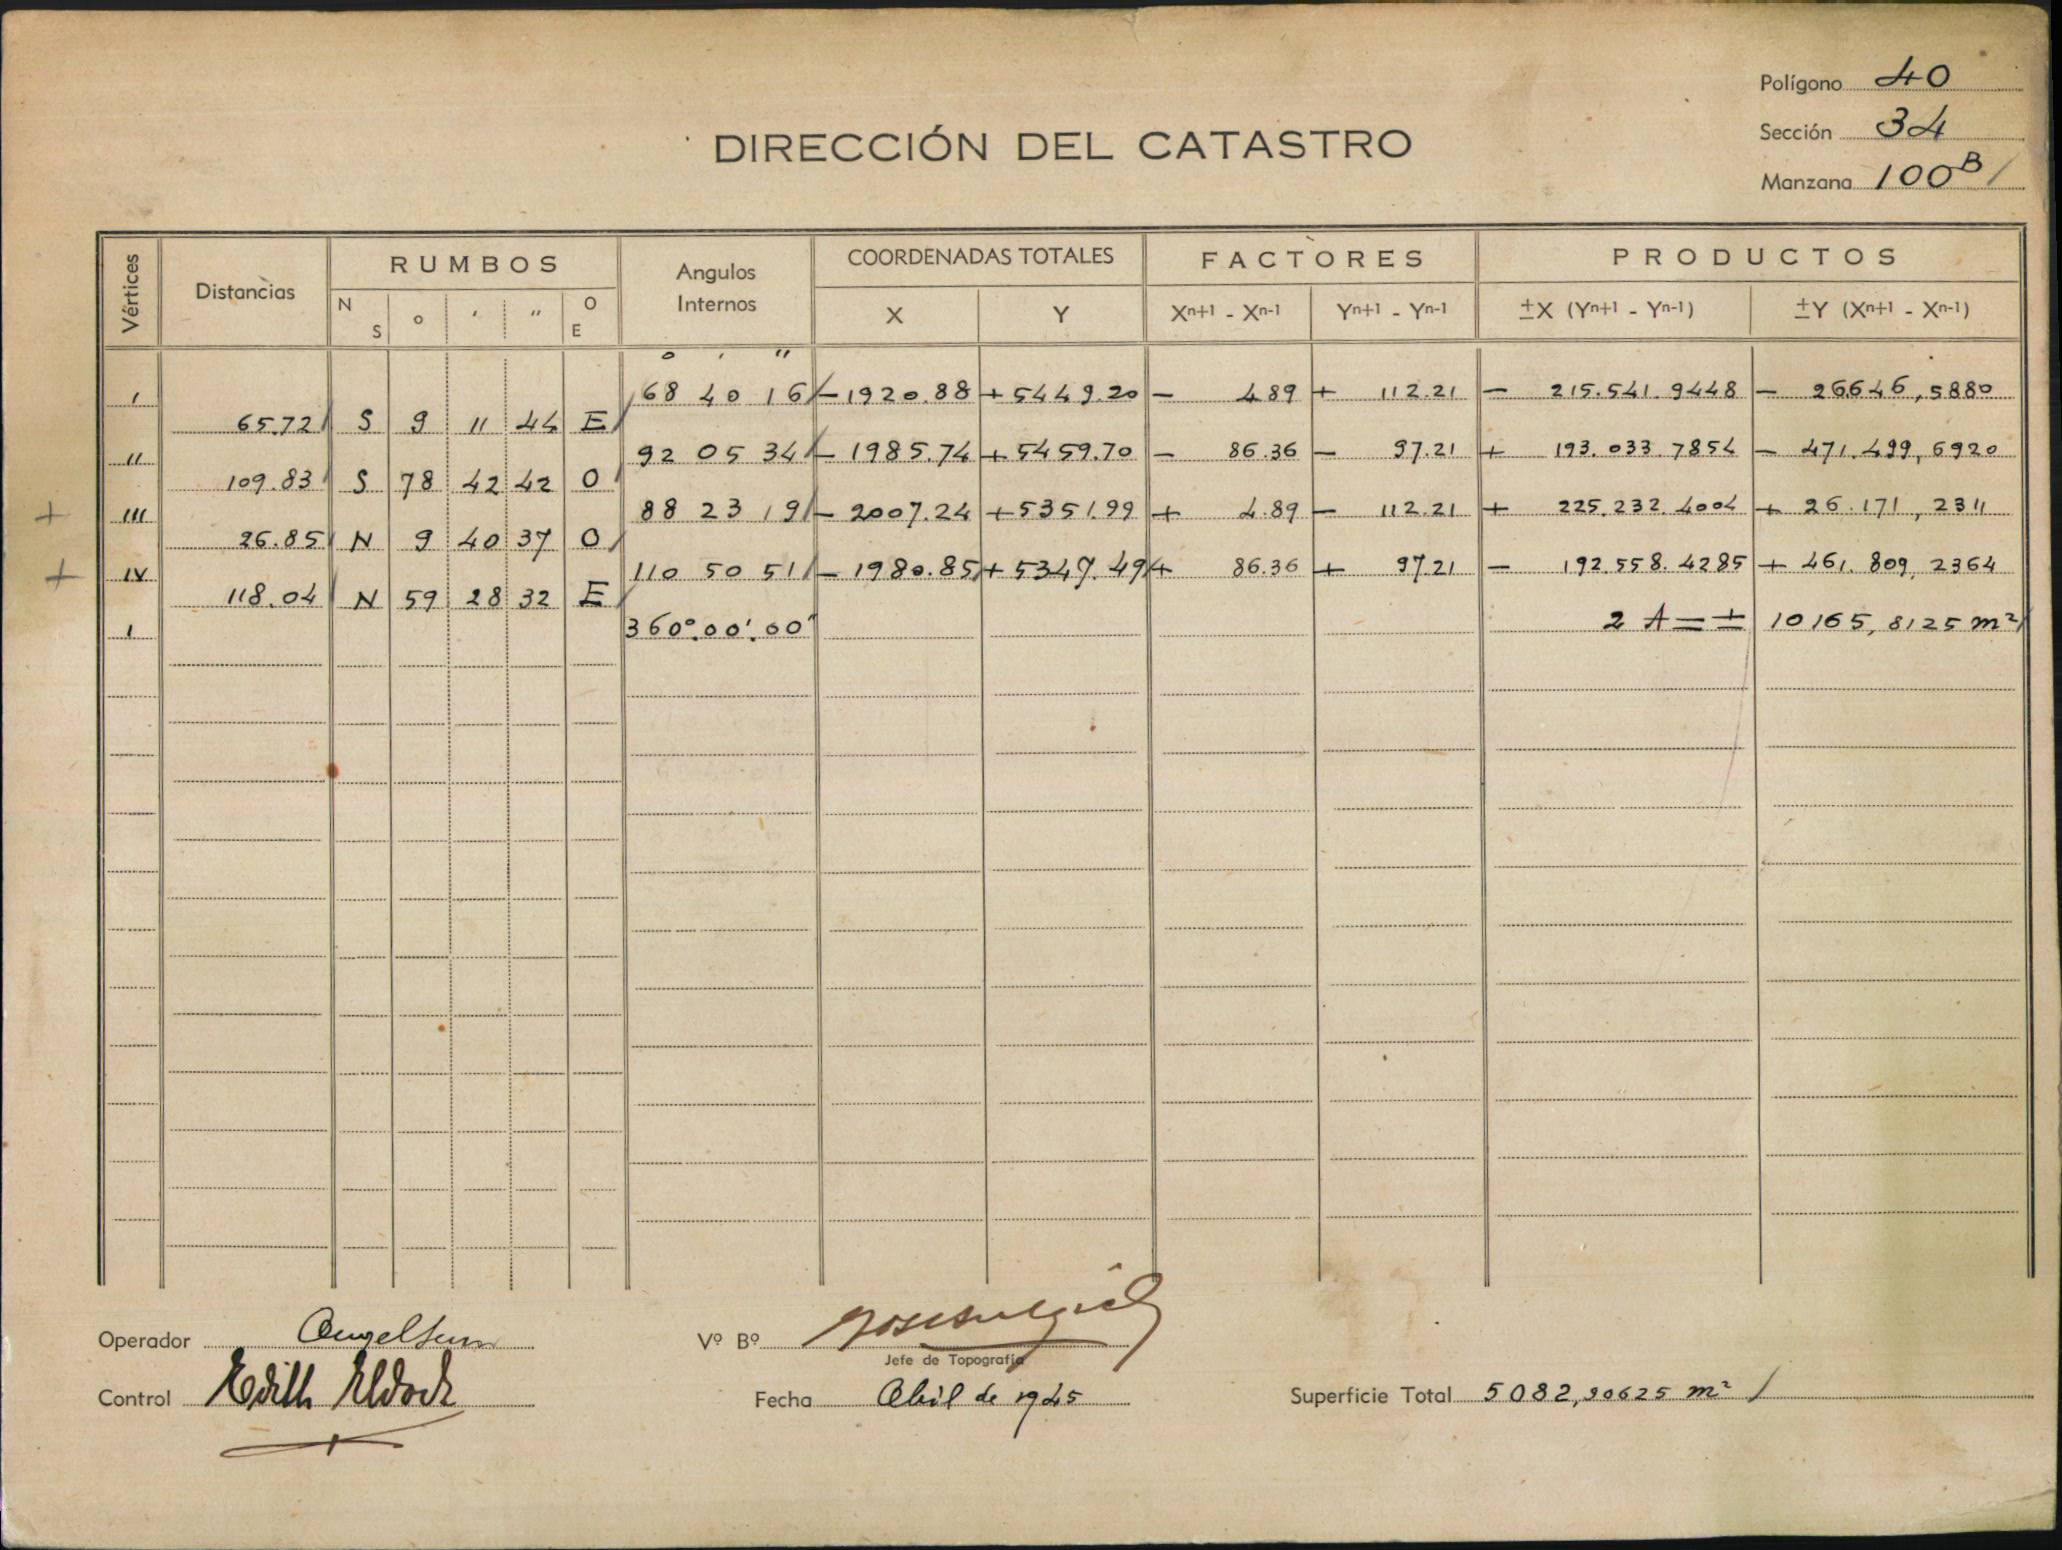 Polígono 40
DIRECCIÓN DEL CATASTRO
Sección 34
Manzana 100B /
Vértices Distancias RUMBOS Angulos Internos COORDENADAS TOTALES FACTORES PRODUCTOS
N S o ' " O E X Y Xn+1 - Xn-1 Yn+1 - Yn-1 ±X (Yn+1 - Yn-1) ±Y (Xn+1 - Xn-1)
o ' "
I 68 40 16 - 1920.88 + 5449.20 - 4.89 + 112.21 - 215.541.9448 - 26646,5880
65.72 S 9 11 44 E
II 92 05 34 - 1985.74 + 5459.70 - 86.36 - 97.21 + 193.033.7854 - 471.499,6920
109.83 S 78 42 42 O
+ III 88 23 19 - 2007.24 + 5351.99 + 4.89 - 112.21 + 225.232.4004 + 26.171,2311
26.85 N 9 40 37 O
+ IV 110 50 51 - 1980.85 + 5347.49 + 86.36 + 97.21 - 192.558.4285 + 461.809,2364
118.04 N 59 28 32 E
I 360°.00'.00" 2 A = ± 10165,8125 m²
Operador
Vº Bº
Jefe de Topografía
Control Edith
Fecha Abil de 1945
Superficie Total 5082,90625 m² /